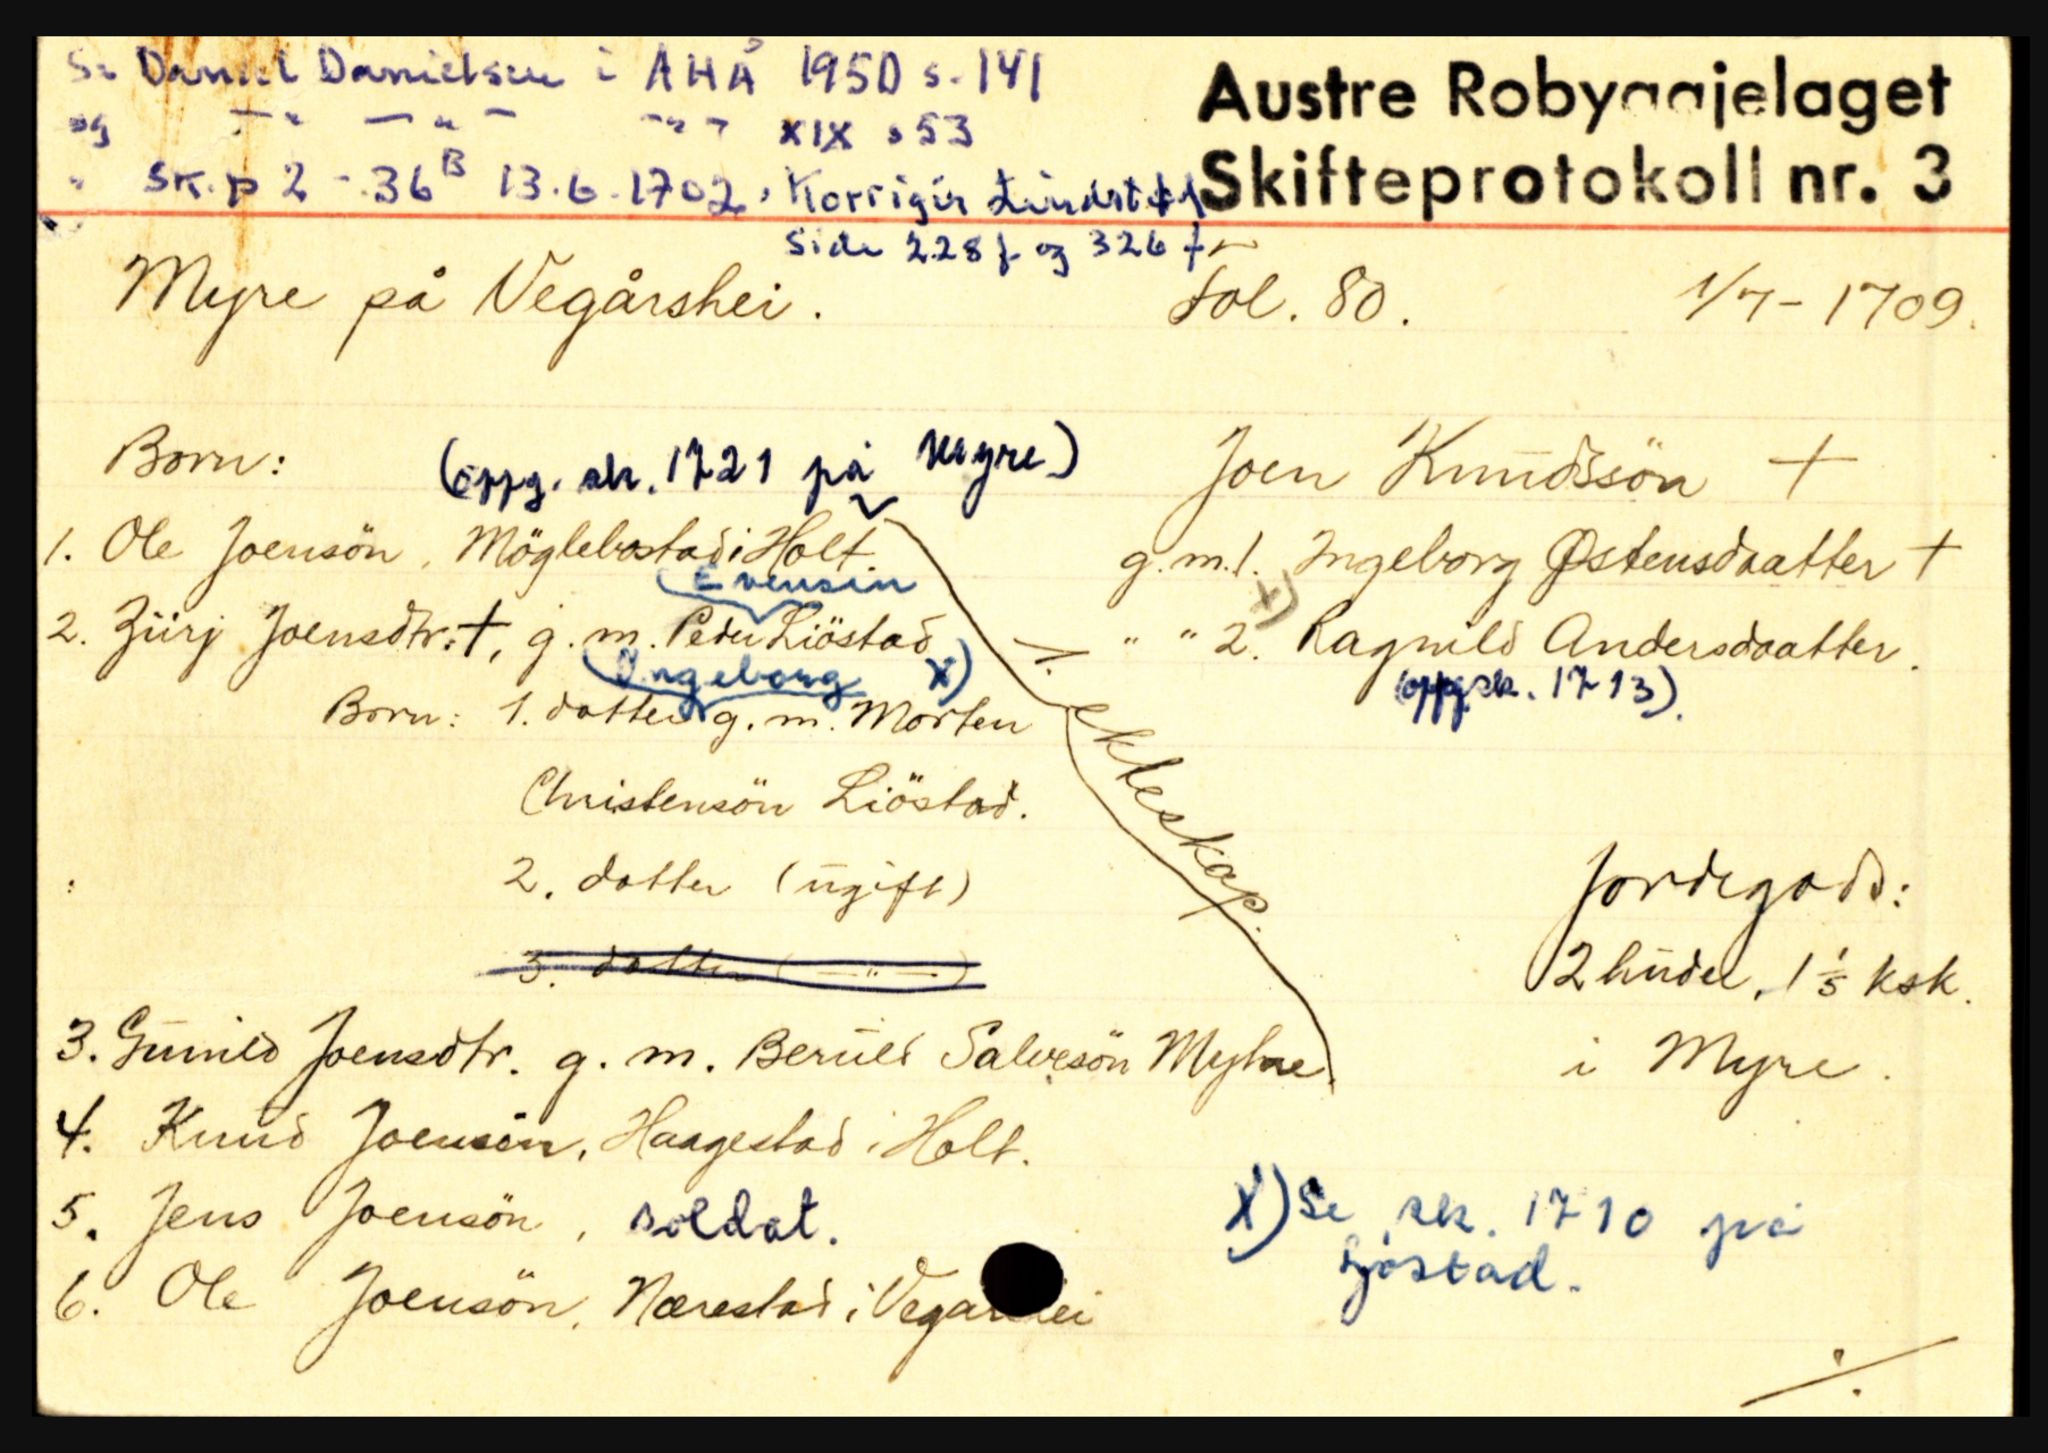 Se Daniel Danielsen i AHÅ 1950 s. 141
og — " — — " — — " — XIX s 53
" Sk.p 2 - 36B 13.6.1702, Korrigir Lindstøl
Side 228 f og 326 f
Austre Robyggjelaget
Skifteprotokoll nr. 3
Myre på Vegårshei. fol. 80. 1/7 - 1709.
Born: (oppg. sk. 1721 på Myre)
Joen Knudssön †
1. Ole Joensön, Möglebostad i Holt
g.m.1. Ingeborg Østensdaatter †
Evensen
2. Zürj Joensdtr. †, g. m. Peder Liöstad
" " 2. x) Ragnild Andersdaatter.
(oppg sk. 1713).
Ingeborg x)
Born: 1. datter g. m. Morten
Christensön Liöstad.
2. datter (ugift)
3. datter ( — " — )
1. ekteskap.
Jordegods:
2 huder, 1 1/3 ksk.
i Myre.
3. Gunild Joensdtr. g. m. Beruld Salvesön Myhre
4. Knud Joensön, Haagestad i Holt.
5. Jens Joensön, soldat.
6. Ole Joensön, Nærestad i Vegarshei
X) Se sk. 1710 på
Ljøstad.
./.